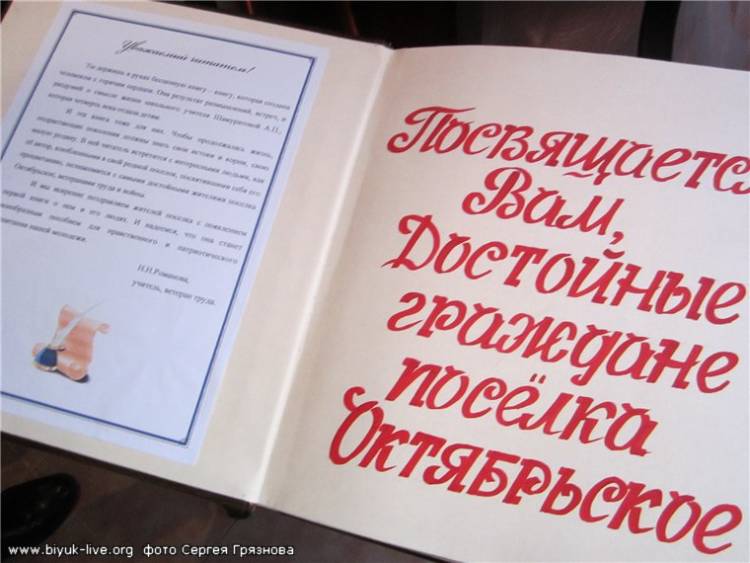 Уважаемый читатель!
Ты держишь в руках бесценную книгу - книгу, которая создана
человеком с горячим сердцем. Она результат размышлений, встреч, и
раздумий о смысле жизни школьного учителя Шамуратовой А.П.,
которая четверть века отдала детям.
И эта книга тоже для них. Чтобы продолжалась жизнь,
подрастающие поколения должны знать свои истоки и корни, свою
малую родину. В ней читатель встретится с интересными людьми, как
об автор, влюбленными в свой родной поселок, посвятившими себя его
процветанию, познакомится с самыми достойными жителями поселка
Октябрьское, ветеранами труда и войны.
И мы искренне поздравляем жителей поселка с появлением
первой книги о нем и его людях. И надеемся, что она станет
своеобразным пособием для нравственного и патриотического
воспитания нашей молодежи.
Н.Н.Романова,
учитель, ветеран труда.
Посвящается
Вам,
Достойные
граждане
посёлка
Октябрьское
www.biyuk-live.org фото Сергея Грязнова